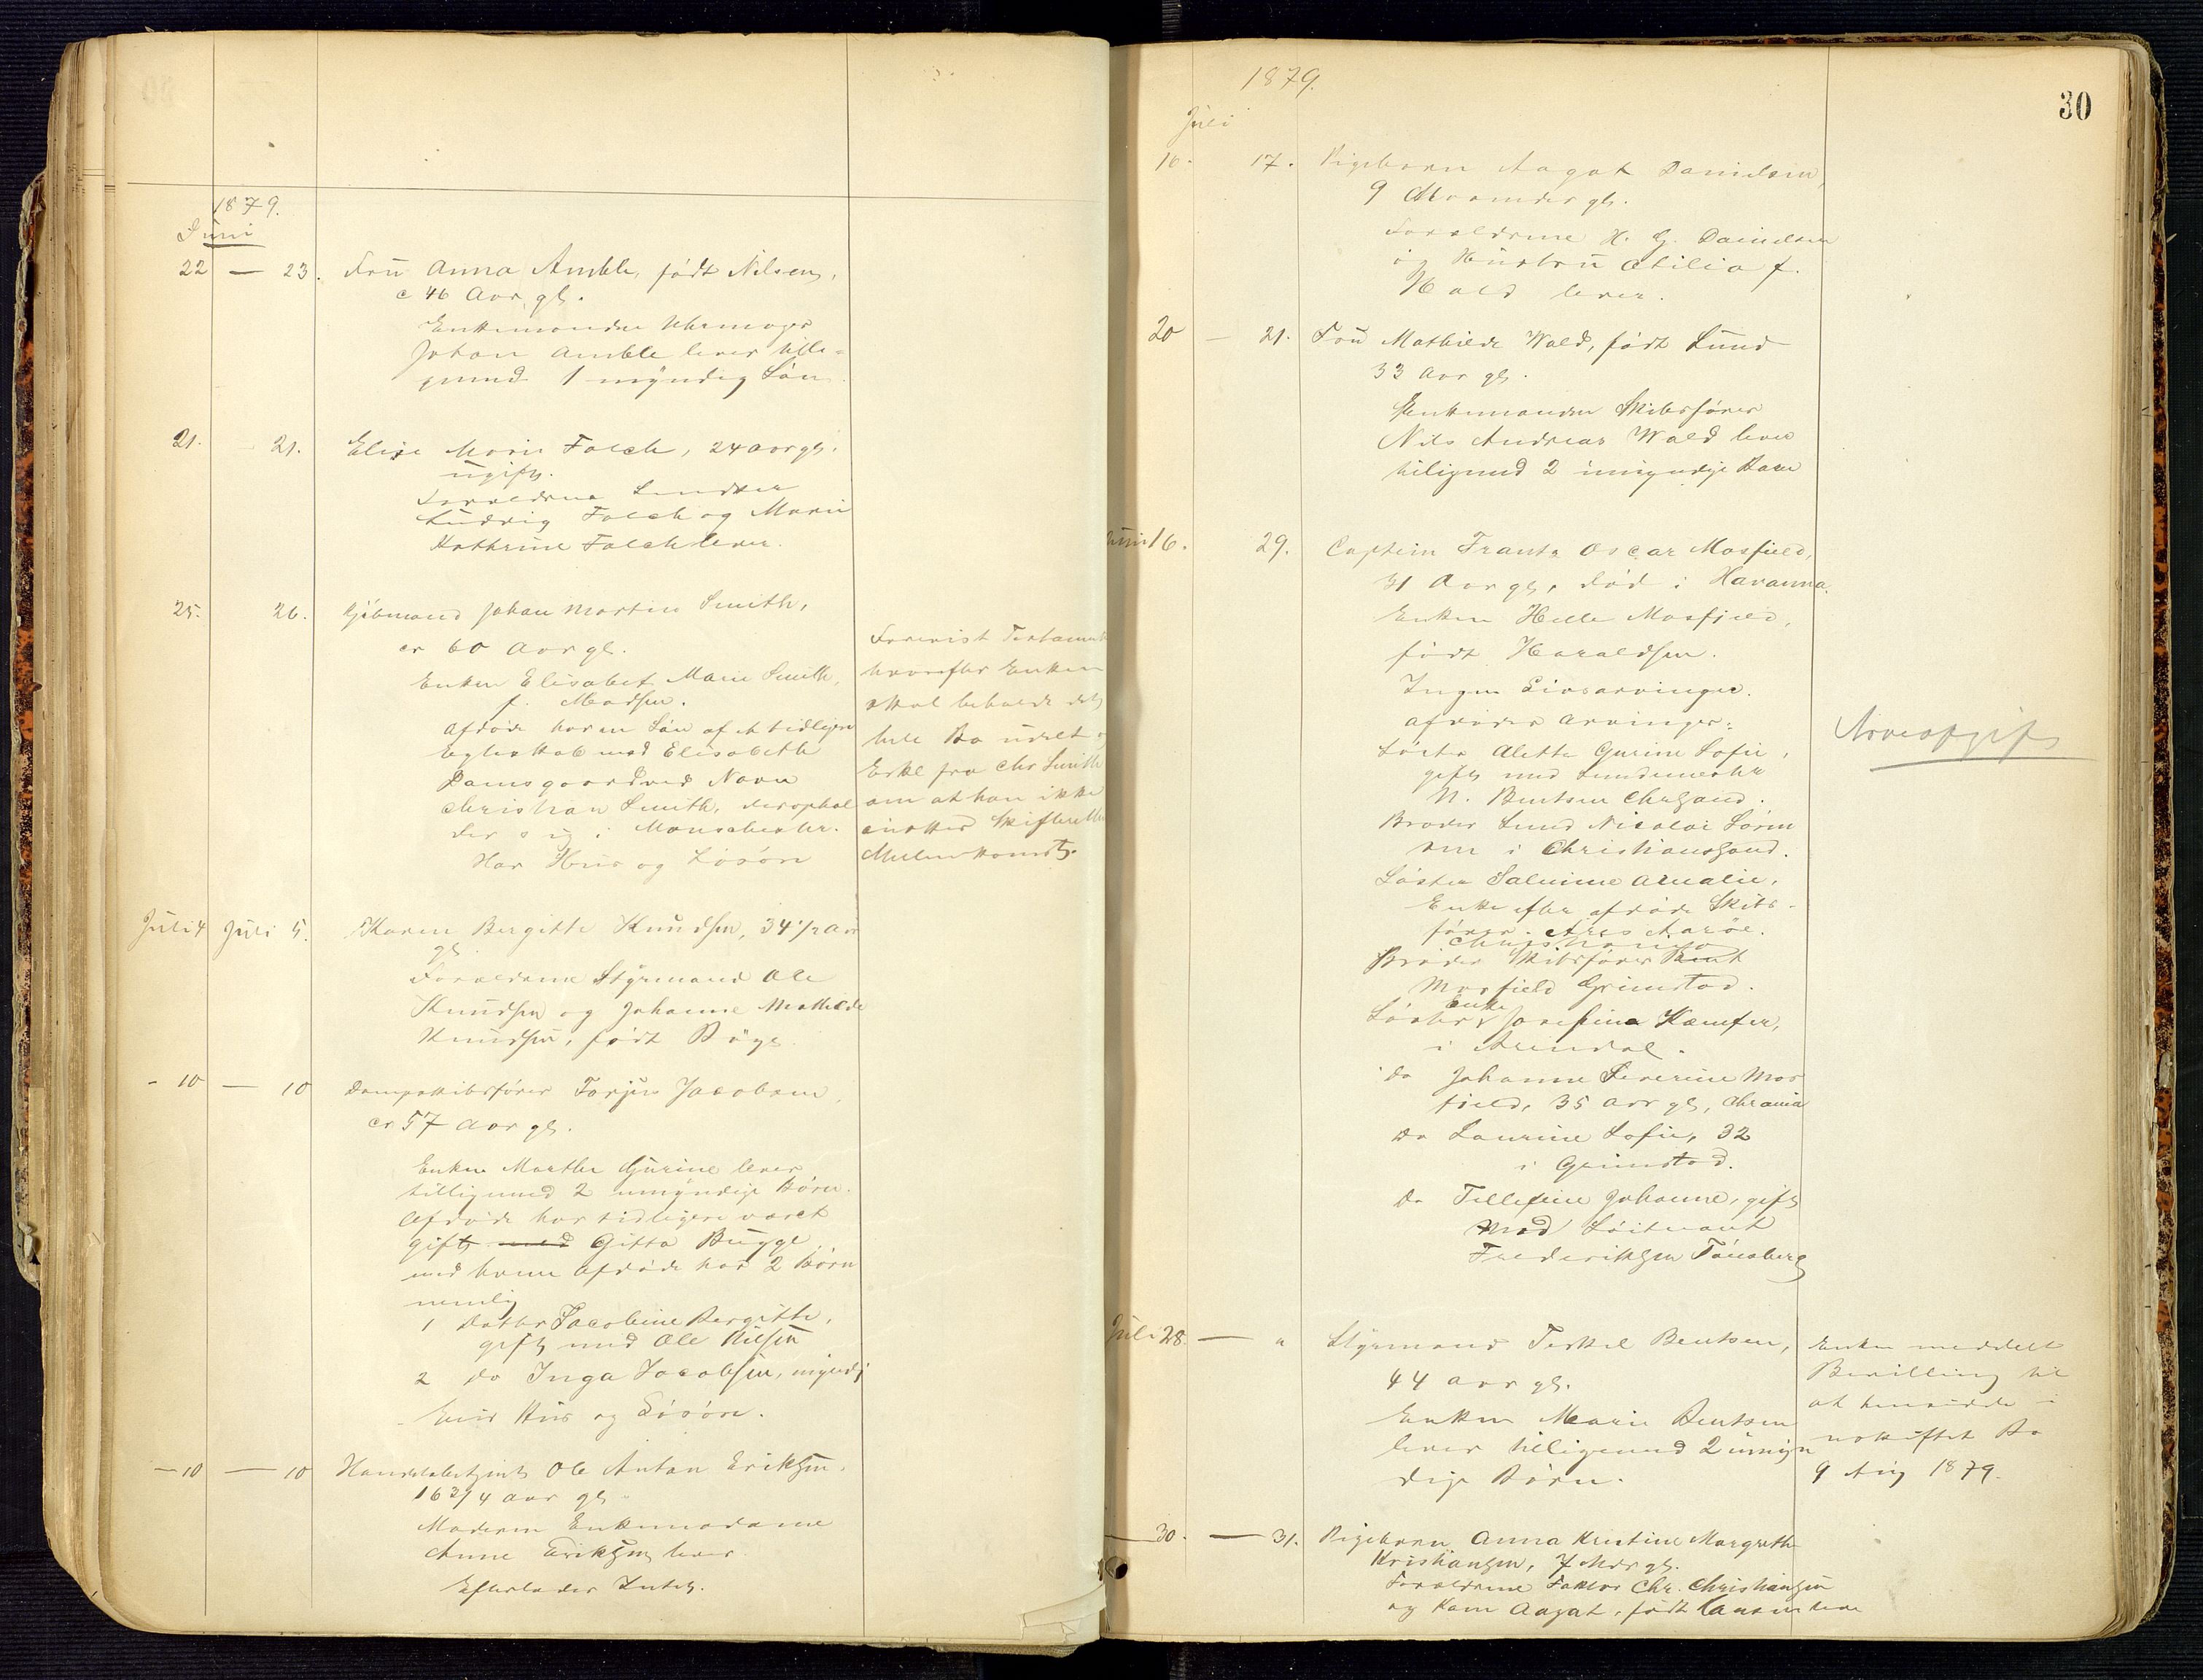 1879.
Juni
22 — 23. Fru Anna Amble, født Nilsen,
c 46 Aar gl.
Enkemanden Uhrmager
Johan Amble lever tille-
gemed 1 myndig Søn
21. 21. Elise Marie Falch, 24 aar gl.
ugift.
Forældrene
Ludvig Falch og Marie
Kathrine Falch lever.
25. 26. Kjøbmand Johan Martin Smith,
cr 60 Aar gl.
Enken Elisabet Marie Smith,
f. Madsen.
Afdøde har en Søn af et tidligere
Egteskab med Elisabeth
Damsgaard ved Navn
Christian Smith, der ophol
der sig i Manschester.
Har Huus og Løsøre
Forevist Testament
hvorefter Enken
skal beholde det
hele Bo udelt og
Erkl fra Chr Smith
om at han ikke
ønsker Skifterettens
Mellemkomst.
Juli 4 Juli 5. Karen Bergitte Knudsen, 34 1/2 Aar
gl.
Forældrene Styrmand Ole
Knudsen og Johanne Mathilde
Knudsen, født Bøge.
- 10 — 10 Dampskibsfører Torjus Jacobsen,
cr 57 Aar gl.
Enken Marthe Gurine lever
tilligemed 2 umyndige Børn.
Afdøde har tidligere været
gift med Gitta Bugge
med hvem Afdøde har 2 Børn
nemlig
1 Datter Jacobine Bergitte,
gift med Ole Nilsen
2 do Inga Jacobsen, myndig
Eier Hus og Løsøre.
— 10 — 10 Handelsbetjent Ole Anton Eriksen,
16 3/4 aar gl.
Moderen Enkemadame
Anne Eriksen lever
Efterlader Intet.
30
1879.
Juli
16. 17. Pigebarn Aagot Danielsen,
9 Maaneder gl.
Forældrene H. G. Danielsen
og Hustru Otilia f.
Wald lever.
20 — 21. Fru Mathilde Wald, født Lund
33 Aar gl.
Enkemanden Skibsfører
Nils Andreas Wald lever
tiligemed 2 umyndige Børn
Juni 16. 29. Captein Frantz Oscar Mosfield,
31 Aar gl, død i Havanna.
Enken Helle Mosfjeld,
født Haraldsen.
Ingen Livsarvinger.
Afdødes Arvinger:
Søster Alette Gurine Sofie,
gift med
N. Bentsen ChrSand.
Broder Svend Nicolai Sørm
sen i Christianssand.
Søster Salmine Amalie,
Enke efter afdøde Skibs-
fører Aarøe.
Christiania
Broder Skibsfører Bent
Mosfield Grimstad.
Enke
Søster Josefine Kemfer,
i Arendal.
do Johanne Severine Mos
field, 35 Aar gl, Chrania
do Laurine Sofie, 32
i Grimstad.
do Tellefine Johanne, gift
med Løitnant
Frederiksen Tönsberg
Arveafgift
Juli 28. — " Styrmand Terkel Bentsen,
44 aar gl.
Enken Marie Bentsen
lever tilligemed 2 umyn
dige Børn.
Enken meddelt
Bevilling til
at hensidde i
uskiftet Bo
9 Aug 1879.
— 30. — 31. Pigebarn Anna Kristine Margrethe
Kristiansen, 7 Mdr gl.
Forældrene Faktor Chr. Christiansen
og Kone Aagot, født Hansen lever